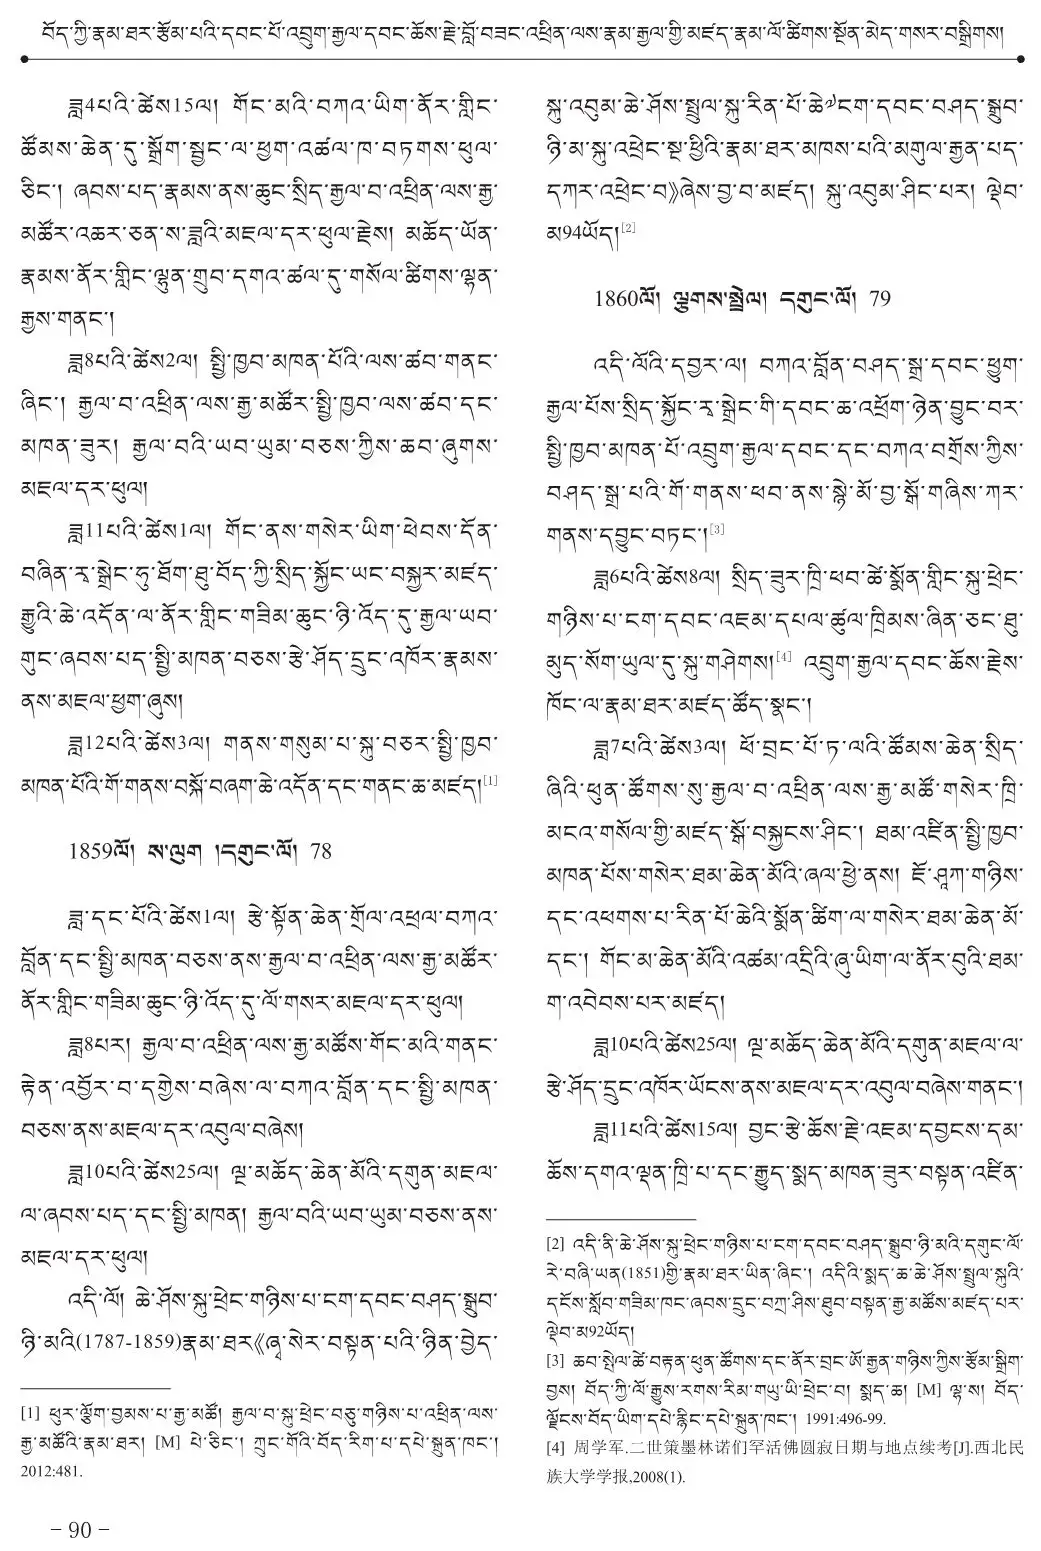 བོད་ཀྱི་རྣམ་ཐར་རྩོམ་པའི་དབང་པོ་འབྲུག་རྒྱལ་དབང་ཆོས་རྗེ་བློ་བཟང་འཕྲིན་ལས་རྣམ་རྒྱལ་གྱི་མཛད་རྣམ་ལོ་ཚིགས་སྔོན་མེད་གསར་བསྒྲིགས།
ཟླ4པའི་ཚེས15ལ། གོང་མའི་བཀའ་ཡིག་ནོར་གླིང་
ཚོམས་ཆེན་དུ་སྒྲོག་སྦྱང་ལ་ཕྱག་འཚལ་ཁ་བཏགས་ཕུལ་
ཅིང་། ཞབས་པད་རྣམས་ནས་ཆུང་སྲིད་རྒྱལ་བ་འཕྲིན་ལས་རྒྱ་
མཚོར་འཆར་ཅན་ས་ཟླའི་མཇལ་དར་ཕུལ་རྗེས། མཆོད་ཡོན་
རྣམས་ནོར་གླིང་ལྷུན་གྲུབ་དགའ་ཚལ་དུ་གསོལ་ཚིགས་ལྷན་
རྒྱས་གནང་།
ཟླ8པའི་ཚེས2ལ། སྤྱི་ཁྱབ་མཁན་པོའི་ལས་ཚབ་གནང་
ཞིང་། རྒྱལ་བ་འཕྲིན་ལས་རྒྱ་མཚོར་སྤྱི་ཁྱབ་ལས་ཚབ་དང་
མཁན་ཟུར། རྒྱལ་བའི་ཡབ་ཡུམ་བཅས་ཀྱིས་ཆབ་ཞུགས་
མཇལ་དར་ཕུལ།
ཟླ11པའི་ཚེས1ལ། གོང་ནས་གསེར་ཡིག་ཕེབས་དོན་
བཞིན་རྭ་སྒྲེང་ཧུ་ཐོག་ཐུ་བོད་ཀྱི་སྲིད་སྐྱོང་ཡང་བསྐྱར་མཛད་
རྒྱུའི་ཆེ་འདོན་ལ་ནོར་གླིང་གཟིམ་ཆུང་ཉི་འོད་དུ་རྒྱལ་ཡབ་
གུང་ཞབས་པད་སྤྱི་མཁན་བཅས་རྩེ་ཤོད་དྲུང་འཁོར་རྣམས་
ནས་མཇལ་ཕྱག་ཞུས།
ཟླ12པའི་ཚེས3ལ། གནས་གསུམ་པ་སྐུ་བཅར་སྤྱི་ཁྱབ་
མཁན་པོའི་གོ་གནས་བསྐོ་བཞག་ཆེ་འདོན་དང་གནང་ཆ་མཛད།[1]
1859ལོ། ས་ལུག །དགུང་ལོ། 78
ཟླ་དང་པོའི་ཚེས1ལ། རྩེ་སྟོན་ཆེན་གྲོལ་འཕྲལ་བཀའ་
བློན་དང་སྤྱི་མཁན་བཅས་ནས་རྒྱལ་བ་འཕྲིན་ལས་རྒྱ་མཚོར་
ནོར་གླིང་གཟིམ་ཆུང་ཉི་འོད་དུ་ལོ་གསར་མཇལ་དར་ཕུལ།
ཟླ8པར། རྒྱལ་བ་འཕྲིན་ལས་རྒྱ་མཚོས་གོང་མའི་གནང་
རྟེན་འབྱོར་བ་དགྱེས་བཞེས་ལ་བཀའ་བློན་དང་སྤྱི་མཁན་
བཅས་ནས་མཇལ་དར་འབུལ་བཞེས།
ཟླ10པའི་ཚེས25ལ། ལྔ་མཆོད་ཆེན་མོའི་དགུན་མཇལ་
ལ་ཞབས་པད་དང་སྤྱི་མཁན། རྒྱལ་བའི་ཡབ་ཡུམ་བཅས་ནས་
མཇལ་དར་ཕུལ།
འདི་ལོ། ཆེ་ཤོས་སྐུ་ཕྲེང་གཉིས་པ་ངག་དབང་བཤད་སྒྲུབ་
ཉི་མའི་(1787-1859)རྣམ་ཐར《ཞྭ་སེར་བསྟན་པའི་ཉིན་བྱེད་
[1] ཕུར་ལྕོག་བྱམས་པ་རྒྱ་མཚོ། རྒྱལ་བ་སྐུ་ཕྲེང་བཅུ་གཉིས་པ་འཕྲིན་ལས་
རྒྱ་མཚོའི་རྣམ་ཐར། [M] པེ་ཅིང་། ཀྲུང་གོའི་བོད་རིག་པ་དཔེ་སྐྲུན་ཁང་།
2012:481.
སྐུ་འབུམ་ཆེ་ཤོས་སྤྲུལ་སྐུ་རིན་པོ་ཆེ༧ངག་དབང་བཤད་སྒྲུབ་
ཉི་མ་སྐུ་འཕྲེང་སྔ་ཕྱིའི་རྣམ་ཐར་མཁས་པའི་མགུལ་རྒྱན་པད་
དཀར་འཕྲེང་བ》ཞེས་བྱ་བ་མཛད། སྐུ་འབུམ་ཤིང་པར། ལྡེབ་
མ94ཡོད།[2]
1860ལོ། ལྕགས་སྤྲེལ། དགུང་ལོ། 79
འདི་ལོའི་དབྱར་ལ། བཀའ་བློན་བཤད་སྒྲ་དབང་ཕྱུག་
རྒྱལ་པོས་སྲིད་སྐྱོང་རྭ་སྒྲེང་གི་དབང་ཆ་འཕྲོག་ཉེན་བྱུང་བར་
སྤྱི་ཁྱབ་མཁན་པོ་འབྲུག་རྒྱལ་དབང་དང་བཀའ་བགྲོས་ཀྱིས་
བཤད་སྒྲ་པའི་གོ་གནས་ཕབ་ནས་སྙེ་མོ་བྱ་སྒོ་གཞིས་ཀར་
གནས་དབྱུང་བཏང་།[3]
ཟླ6པའི་ཚེས8ལ། སྲིད་ཟུར་ཁྲི་ཕབ་ཚེ་སྨོན་གླིང་སྐུ་ཕྲེང་
གཉིས་པ་ངག་དབང་འཇམ་དཔལ་ཚུལ་ཁྲིམས་ཞིན་ཅང་ཐུ་
མུད་སོག་ཡུལ་དུ་སྐུ་གཤེགས།[4] འབྲུག་རྒྱལ་དབང་ཆོས་རྗེས་
ཁོང་ལ་རྣམ་ཐར་མཛད་ཚོད་སྣང་།
ཟླ7པའི་ཚེས3ལ། ཕོ་བྲང་པོ་ཏ་ལའི་ཚོམས་ཆེན་སྲིད་
ཞིའི་ཕུན་ཚོགས་སུ་རྒྱལ་བ་འཕྲིན་ལས་རྒྱ་མཚོ་གསེར་ཁྲི་
མངའ་གསོལ་གྱི་མཛད་སྒོ་བསྐྱངས་ཤིང་། ཐམ་འཛིན་སྤྱི་ཁྱབ་
མཁན་པོས་གསེར་ཐམ་ཆེན་མོའི་ཞལ་ཕྱེ་ནས། ཇོ་ཤཱཀ་གཉིས་
དང་འཕགས་པ་རིན་པོ་ཆེའི་སྨོན་ཚིག་ལ་གསེར་ཐམ་ཆེན་མོ་
དང་། གོང་མ་ཆེན་མོའི་འཚམ་འདྲིའི་ཞུ་ཡིག་ལ་ནོར་བུའི་ཐམ་
ག་འབེབས་པར་མཛད།
ཟླ10པའི་ཚེས25ལ། ལྔ་མཆོད་ཆེན་མོའི་དགུན་མཇལ་ལ་
རྩེ་ཤོད་དྲུང་འཁོར་ཡོངས་ནས་མཇལ་དར་འབུལ་བཞེས་གནང་།
ཟླ11པའི་ཚེས15ལ། བྱང་རྩེ་ཆོས་རྗེ་འཇམ་དབྱངས་དམ་
ཆོས་དགའ་ལྡན་ཁྲི་པ་དང་རྒྱུད་སྨད་མཁན་ཟུར་བསྟན་འཛིན་
[2] འདི་ནི་ཆེ་ཤོས་སྐུ་ཕྲེང་གཉིས་པ་ངག་དབང་བཤད་སྒྲུབ་ཉི་མའི་དགུང་ལོ་
རེ་བཞི་ཡན(1851)གྱི་རྣམ་ཐར་ཡིན་ཞིང་། འདིའི་སྨད་ཆ་ཆེ་ཤོས་སྤྲུལ་སྐུའི་
དངོས་སློབ་གཟིམ་ཁང་ཞབས་དྲུང་བཀྲ་ཤིས་ཐུབ་བསྟན་རྒྱ་མཚོས་མཛད་པར་
ལྡེབ་མ92ཡོད།
[3] ཆབ་སྤེལ་ཚེ་བརྟན་ཕུན་ཚོགས་དང་ནོར་བྲང་ཨོ་རྒྱན་གཉིས་ཀྱིས་རྩོམ་སྒྲིག་
བྱས། བོད་ཀྱི་ལོ་རྒྱུས་རགས་རིམ་གཡུ་ཡི་ཕྲེང་བ། སྨད་ཆ། [M] ལྷ་ས། བོད་
ལྗོངས་བོད་ཡིག་དཔེ་རྙིང་དཔེ་སྐྲུན་ཁང་། 1991:496-99.
[4] 周学军.二世策墨林诺们罕活佛圆寂日期与地点续考[J].西北民
族大学学报,2008(1).
- 90 -